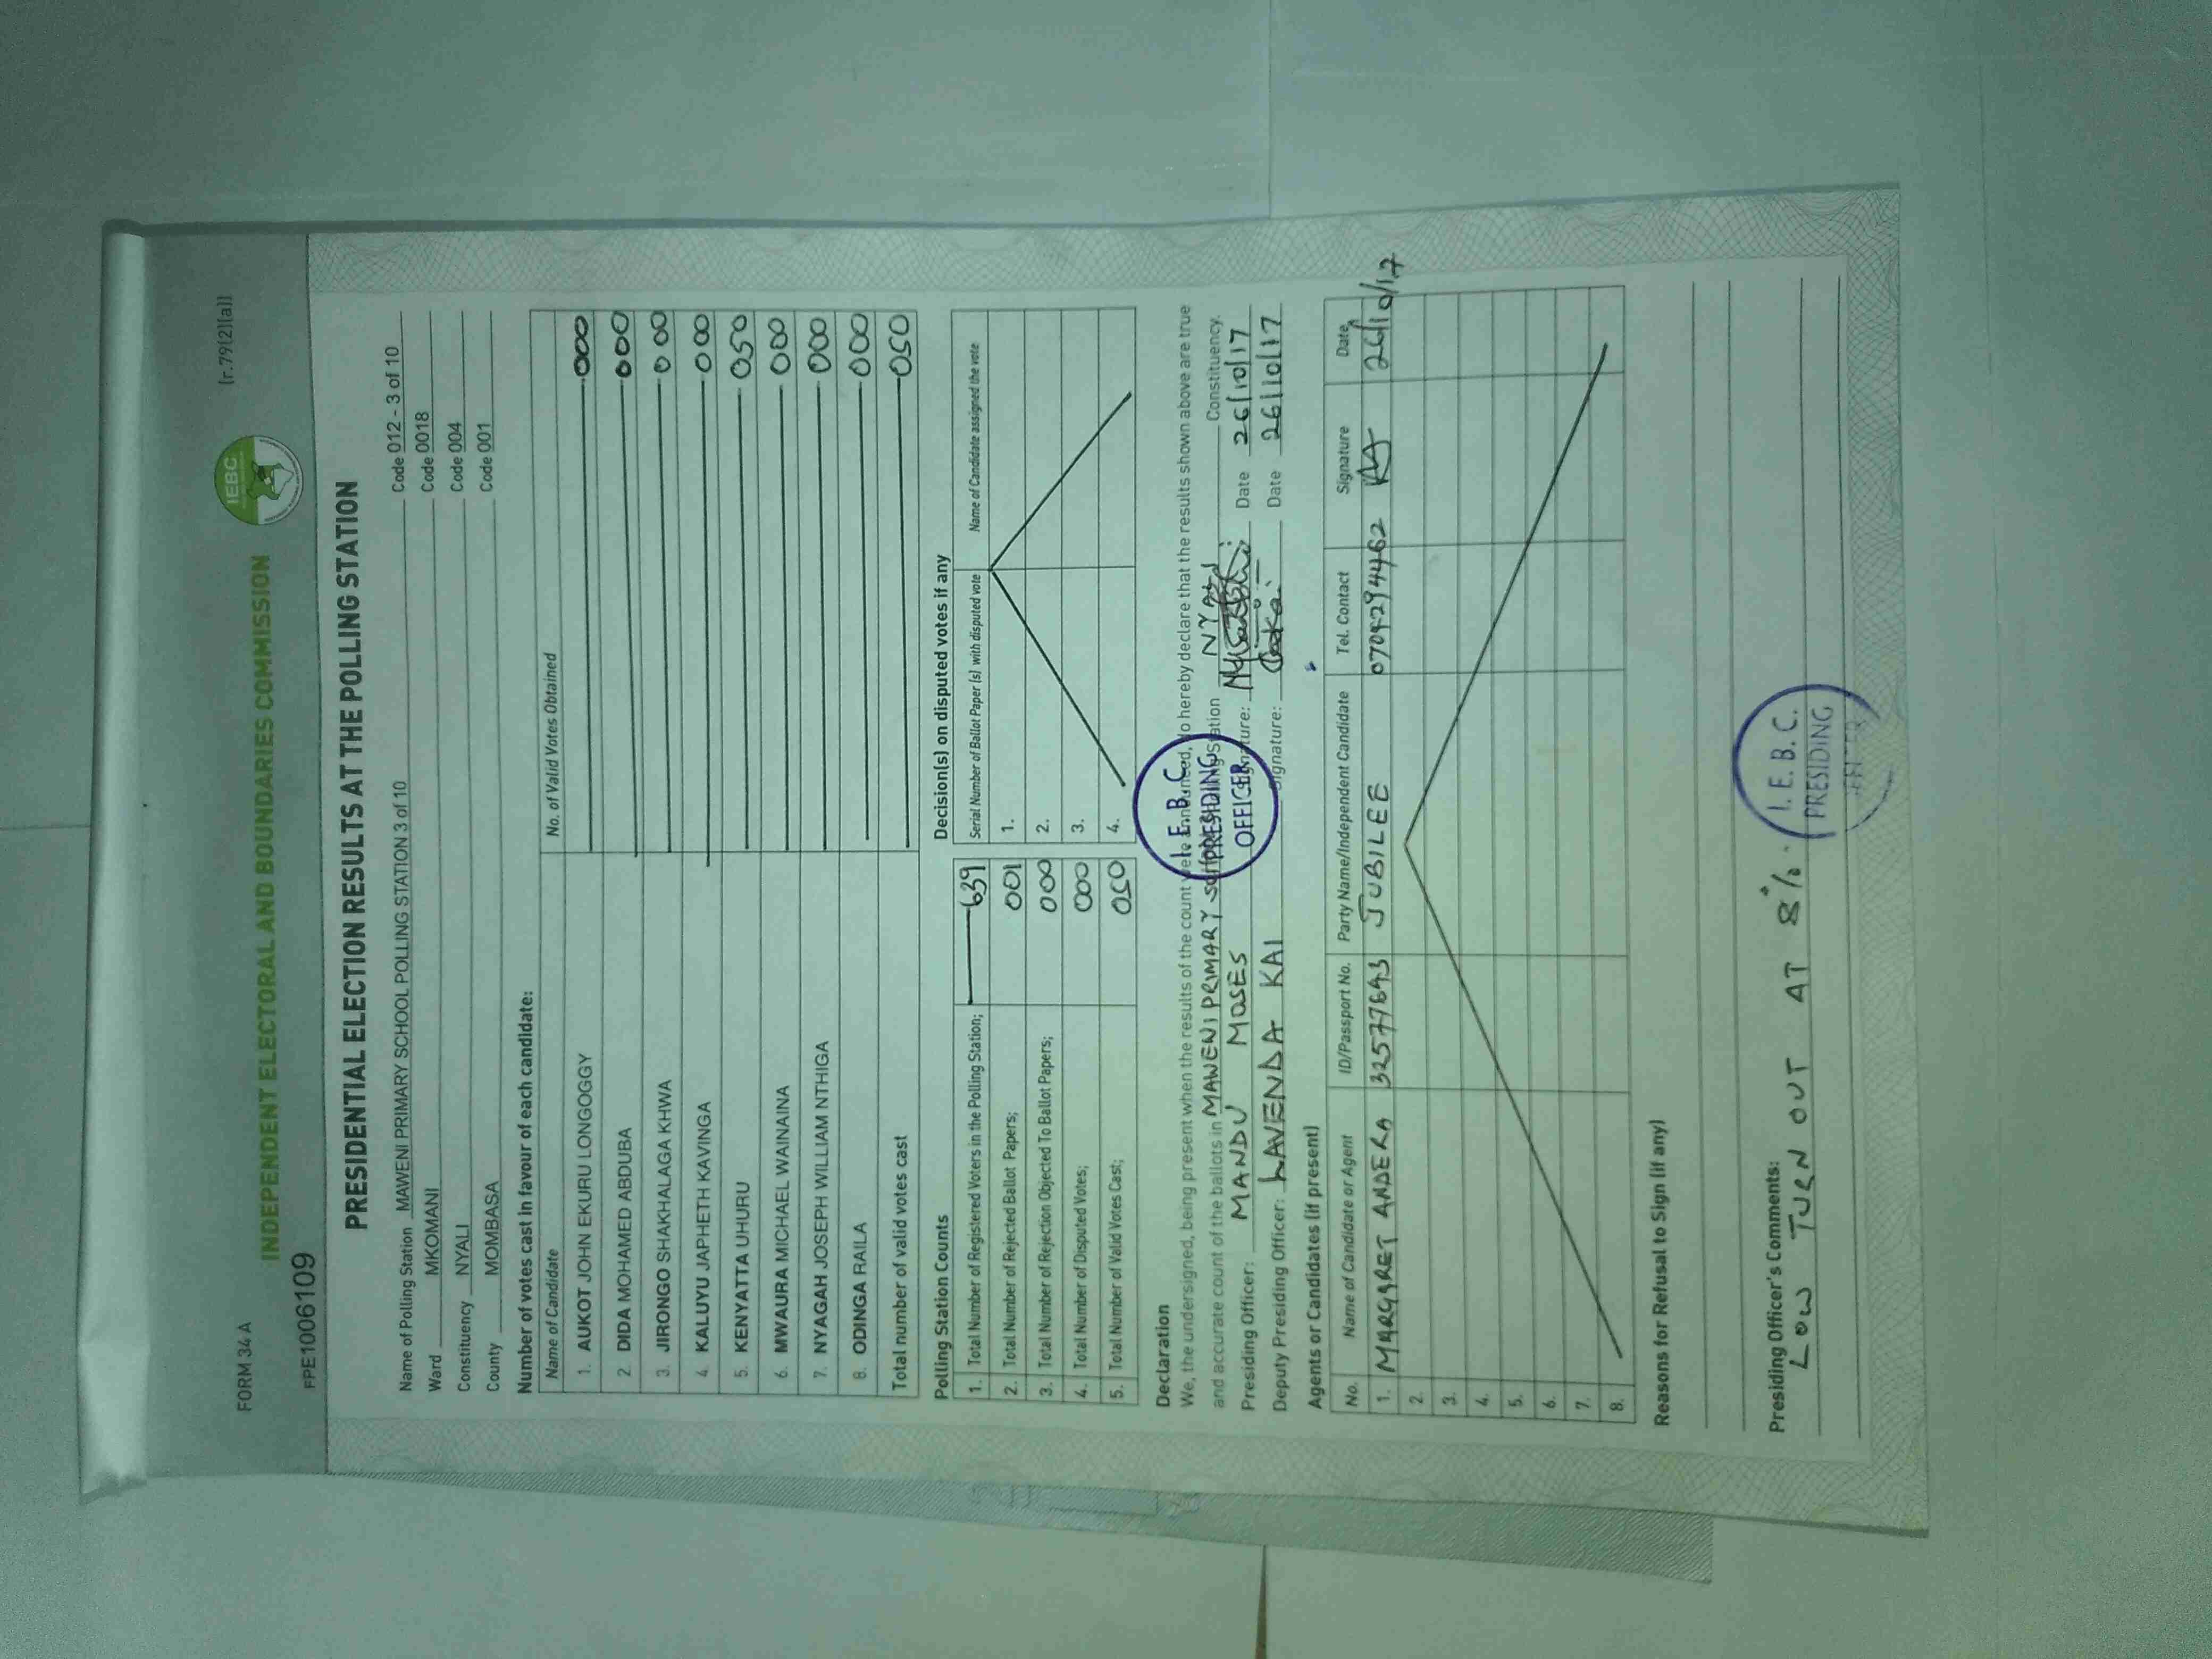 FORM 34 A
(r.79(2)(a))
INDEPENDENT ELECTORAL AND BOUNDARIES COMMISSION
IEBC
FPE1006109
PRESIDENTIAL ELECTION RESULTS AT THE POLLING STATION
Name of Polling Station MAWENI PRIMARY SCHOOL POLLING STATION 3 of 10 Code 012 - 3 of 10
Ward MKOMANI Code 0018
Constituency NYALI Code 004
County MOMBASA Code 001
Number of votes cast in favour of each candidate:
Name of Candidate No. of Valid Votes Obtained
1. AUKOT JOHN EKURU LONGOGGY 000
2. DIDA MOHAMED ABDUBA 000
3. JIRONGO SHAKHALAGA KHWA 000
4. KALUYU JAPHETH KAVINGA 000
5. KENYATTA UHURU 050
6. MWAURA MICHAEL WAINAINA 000
7. NYAGAH JOSEPH WILLIAM NTHIGA 000
8. ODINGA RAILA 000
Total number of valid votes cast 050
Polling Station Counts
1. Total Number of Registered Voters in the Polling Station; 639
2. Total Number of Rejected Ballot Papers; 001
3. Total Number of Rejection Objected To Ballot Papers; 000
4. Total Number of Disputed Votes; 000
5. Total Number of Valid Votes Cast; 050
Decision(s) on disputed votes if any
Serial Number of Ballot Paper (s) with disputed vote Name of Candidate assigned the vote
1.
2.
3.
4.
Declaration
We, the undersigned, being present when the results of the count were announced, do hereby declare that the results shown above are true
and accurate count of the ballots in MAWENI PRIMARY Station NYALI Constituency.
Presiding Officer: MANDU MOSES Signature: Date 26/10/17
Deputy Presiding Officer: LAVENDA KAI Signature: Date 26/10/17
I. E. B. C.
PRESIDING
OFFICER
Agents or Candidates (if present)
No. Name of Candidate or Agent ID/Passport No. Party Name/Independent Candidate Tel. Contact Signature Date
1. MARGARET ANDERA 32577643 JUBILEE 0704294462 26/10/17
2.
3.
4.
5.
6.
7.
8.
Reasons for Refusal to Sign (if any)
Presiding Officer's Comments:
LOW TURN OUT AT 8%.
I. E. B. C.
PRESIDING